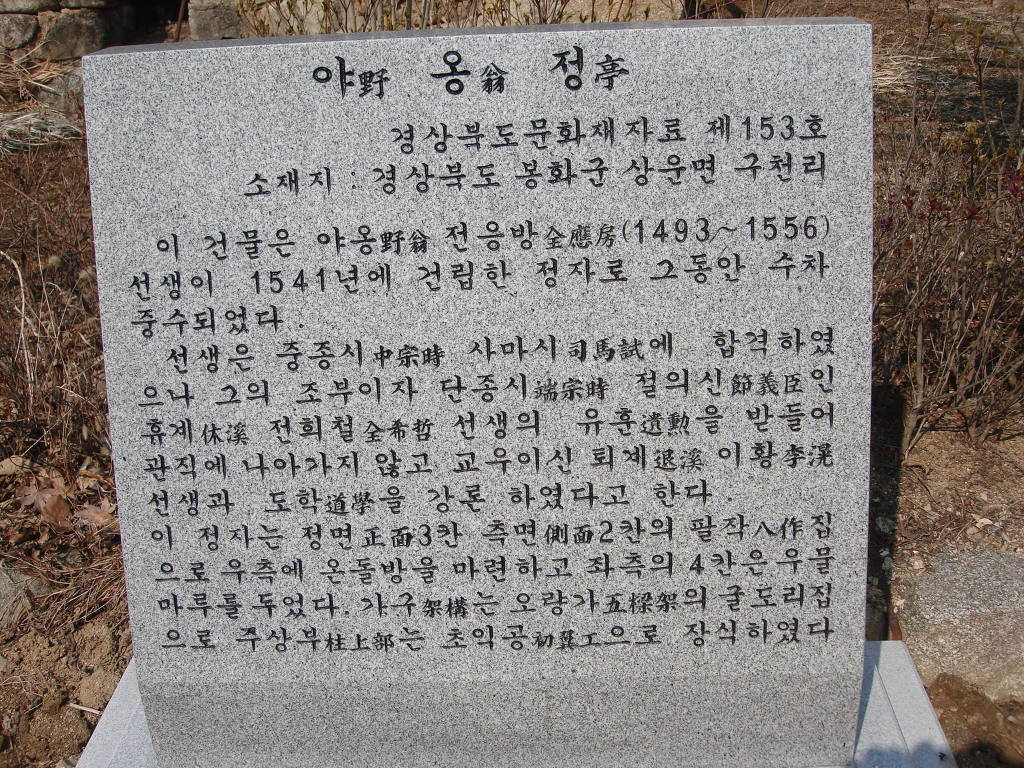 야野 옹翁 정亭
경상북도문화재자료 제153호
소재지 : 경상북도 봉화군 상운면 구천리
이 건물은 야옹野翁 전응방全應房(1493~1556)
선생이 1541년에 건립한 정자로 그동안 수차
중수되었다.
선생은 중종시中宗時 사마시司馬試에 합격하였
으나 그의 조부이자 단종시端宗時 절의신節義臣인
휴계休溪 전희철全希哲 선생의 유훈遺勳을 받들어
관직에 나아가지 않고 교우이신 퇴계退溪 이황李滉
선생과 도학道學을 강론 하였다고 한다.
이 정자는 정면正面3칸 측면側面2칸의 팔작八作집
으로 우측에 온돌방을 마련하고 좌측의 4칸은우물
마루를 두었다. 가구架構는 오량가五樑架의 굴도리집
으로 주상부柱上部는 초익공初翼工으로 장식하였다